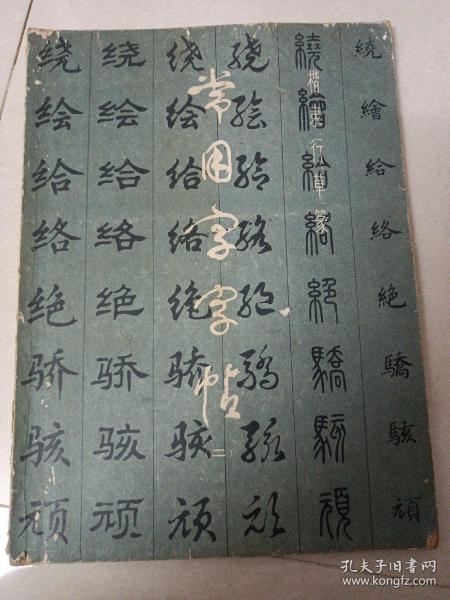 常用字字帖
二
楷隶行草篆
绕绘给络绝骄骇顽
绕绘给络绝骄骇顽
绕绘给络绝骄骇顽
绕绘给络绝骄骇顽
繞繪給絡絶驕駭頑
繞繪給絡絶驕駭頑
孔夫子旧书网
www.kongfz.com